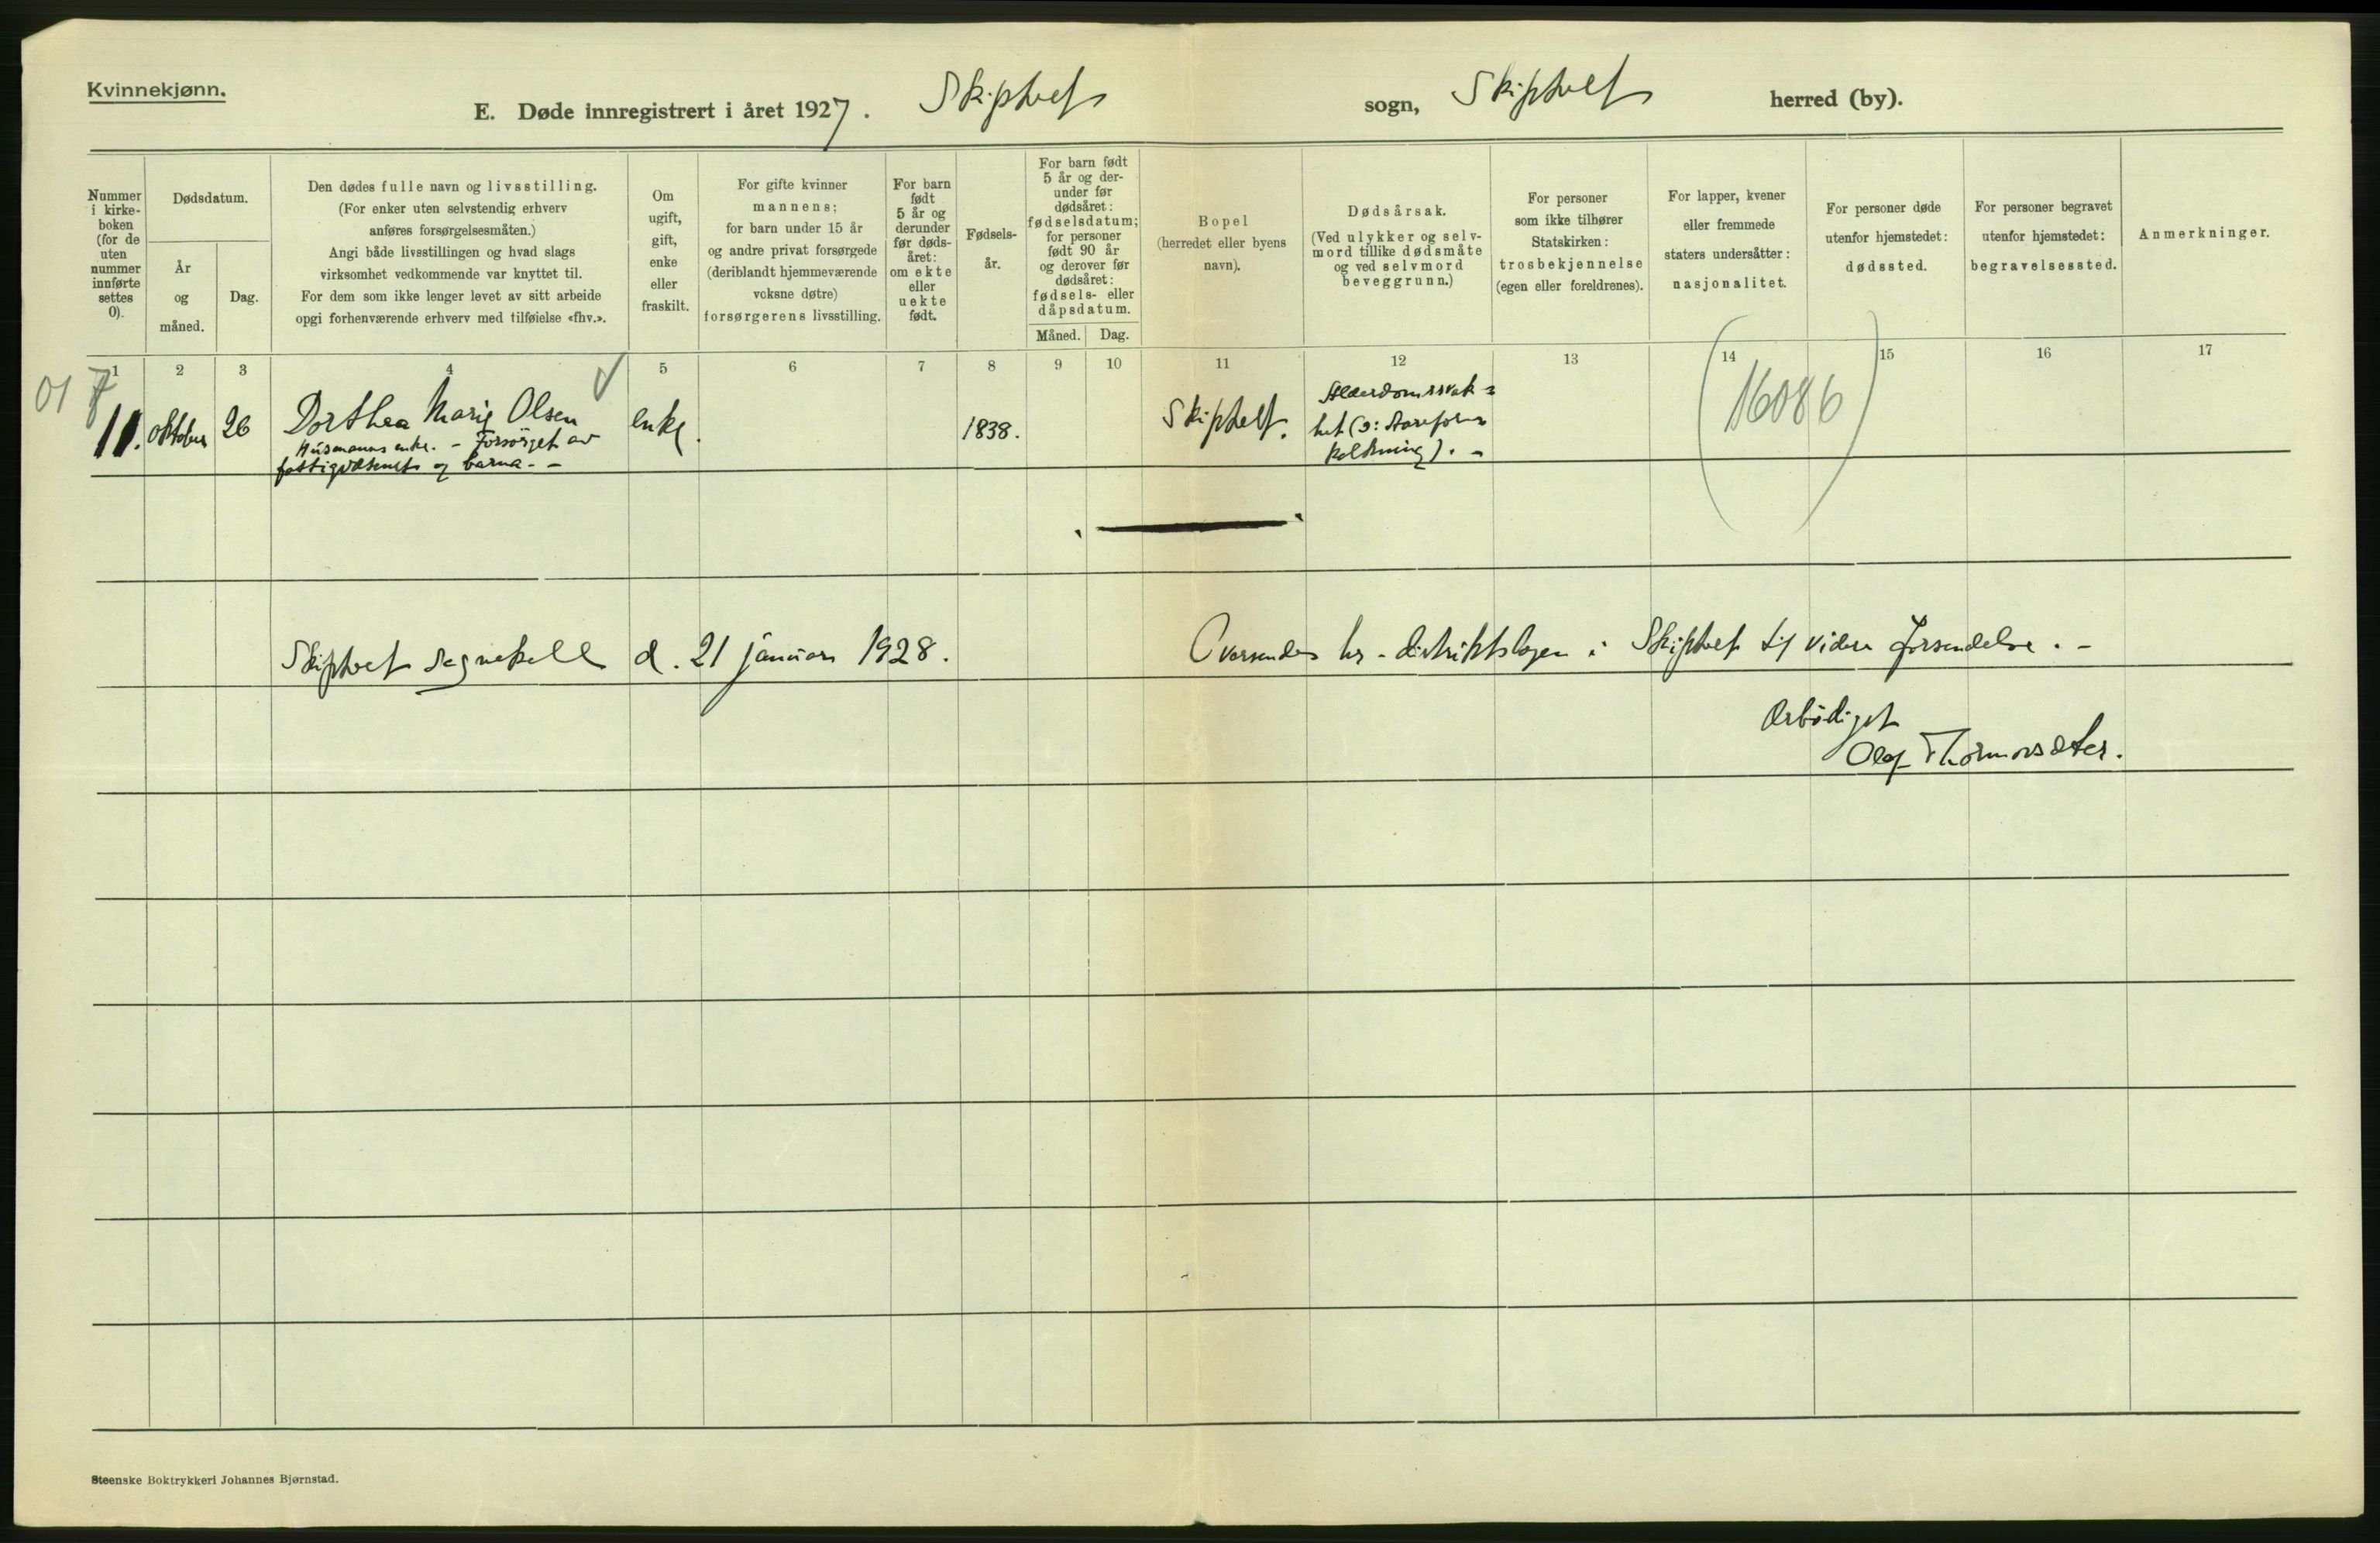 Kvinnekjønn.
E. Døde innregistrert i året 1927. Skiptvet sogn, Skiptvet herred (by).
Nummer i kirke-boken (for de uten nummer innførte settes 0).
Dødsdatum.
År og måned.
Dag.
Den dødes fulle navn og livsstilling.
(For enker uten selvstendig erhverv
anføres forsørgelsesmåten.)
Angi både livsstillingen og hvad slags
virksomhet vedkommende var knyttet til.
For dem som ikke lenger levet av sitt arbeide
opgi forhenværende erhverv med tilføielse «fhv.».
Om
ugift,
gift,
enke
eller
fraskilt.
For gifte kvinner
mannens;
for barn under 15 år
og andre privat forsørgede
(deriblandt hjemmeværende
voksne døtre)
forsørgerens livsstilling.
For barn
født
5 år og
derunder
før døds-
året:
om ekte
eller
uekte
født.
Fødsels-
år.
For barn født
5 år og der-
under før
dødsåret:
fødselsdatum;
for personer
født 90 år
og derover før
dødsåret:
fødsels- eller
dåpsdatum.
Måned. Dag.
Bopel
(herredet eller byens
navn).
Dødsårsak.
(Ved ulykker og selv-
mord tillike dødsmåte
og ved selvmord
beveggrunn.)
For personer
som ikke tilhører
Statskirken:
trosbekjennelse
(egen eller foreldrenes).
For lapper, kvener
eller fremmede
staters undersåtter:
nasjonalitet.
For personer døde
utenfor hjemstedet:
dødssted.
For personer begravet
utenfor hjemstedet:
begravelsessted.
Anmerkninger.
1 2 3 4 5 6 7 8 9 10 11 12 13 14 15 16 17
017
11. oktober 26 Dorthea Marie Olsen enke. 1838. Skiptvet. Alderdomssvak=
Husmanns enke. - Forsörget av
fattigvæsenet og barna. -
het (ɔ: Aarefor=
kalkning). -
(16086)
Skiptvet sognekall d. 21 januar 1928. Oversendes hr. distriktslegen i Skiptvet til videre forsendelse. -
Ærbödigst
Olaf Thormodsæter.
Steenske Boktrykkeri Johannes Bjørnstad.